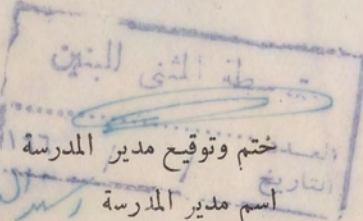 المثنى للبنين
العدد
ختم وتوقيع مدير المدرسة
التاريخ
اسم مدير المدرسة